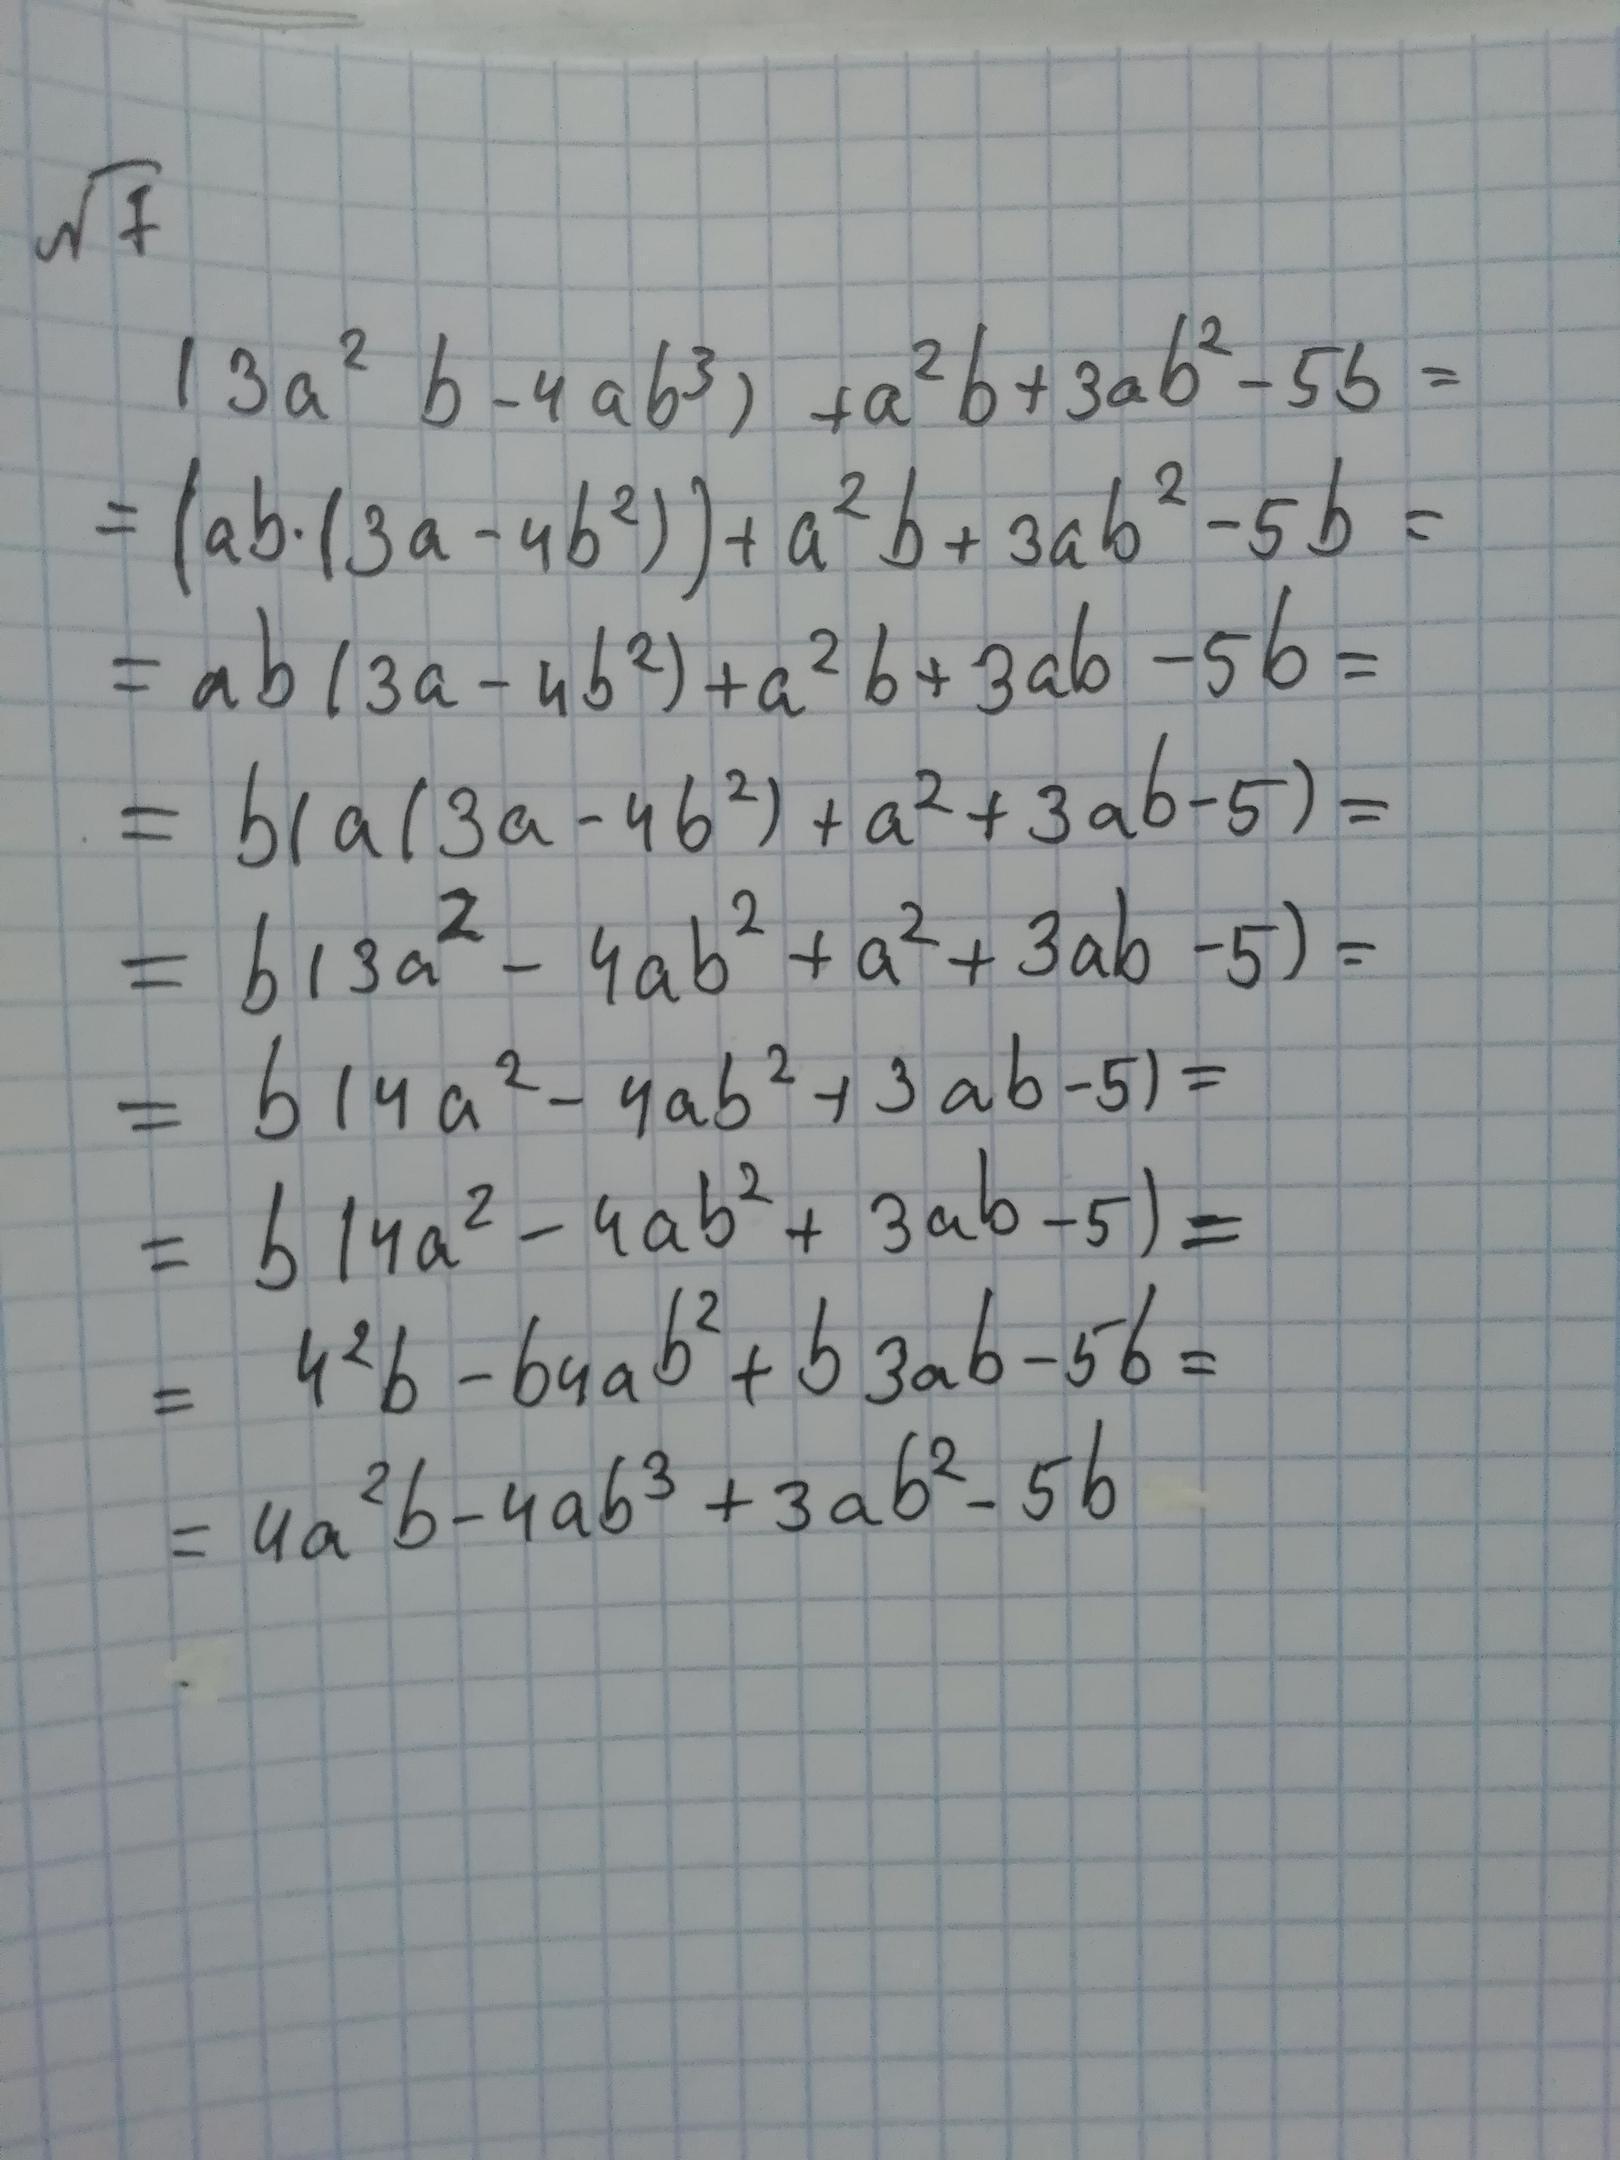 √7
(3a² b-4ab³) +a²b+3ab²-5b=
=(ab·(3a-4b²))+a²b+3ab²-5b=
=ab(3a-4b²)+a²b+3ab-5b=
=b(a(3a-4b²)+a²+3ab-5)=
=b(3a²-4ab²+a²+3ab-5)=
=b(4a²-4ab²+3ab-5)=
=b(4a²-4ab²+3ab-5)=
=4²b-b4ab²+b3ab-5b=
=4a²b-4ab³+3ab²-5b